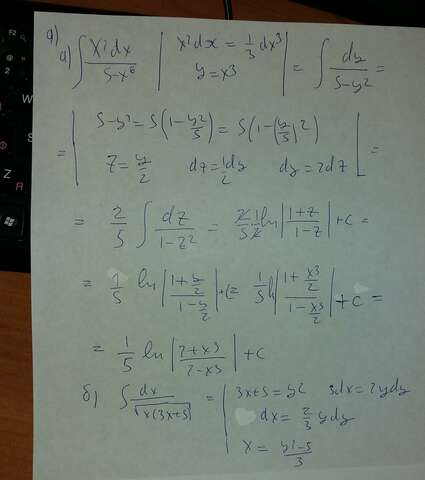 a)
a) ∫ x²dx / 5-x⁶ | x²dx = 1/3 dx³ y = x3 | = ∫ dy / 5-y² =
= | 5-y² = 5(1-y²/5) = 5(1-(y/5)²) z = y/2 dz = 1/2 dy dy = 2dz | =
= 2/5 ∫ dz / 1-z² = 2/5 · 1/2 ln |1+z / 1-z| + c =
= 1/5 ln |1+y/2 / 1-y/2| + c = 1/5 ln |1+x3/2 / 1-x3/2| + c =
= 1/5 ln |2+x3 / 2-x3| + c
б) ∫ dx / √x(3x+5) = | 3x+5 = y2 3dx = 2ydy
dx = 2/3 ydy
x = y²-5 / 3